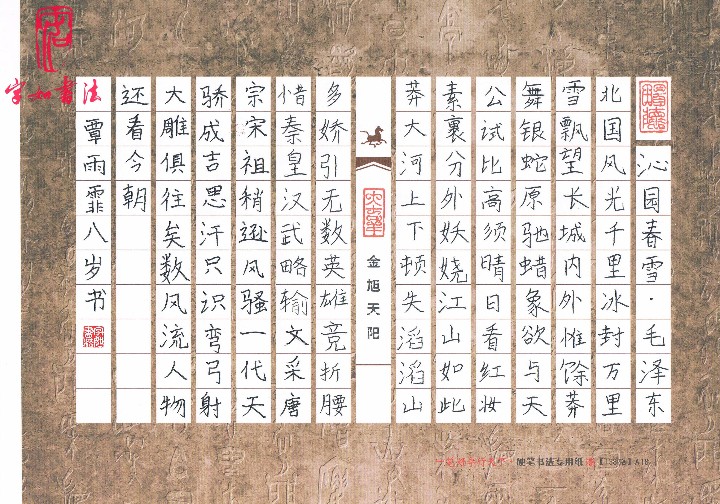 字如书法
沁园春雪·毛泽东
北国风光千里冰封万里
雪飘望长城内外惟馀莽
舞银蛇原驰蜡象欲与天
公试比高须晴日看红妆
素裹分外妖娆江山如此
莽大河上下顿失滔滔山
金旭天阳
多娇引无数英雄竞折腰
惜秦皇汉武略输文采唐
宗宋祖稍逊风骚一代天
骄成吉思汗只识弯弓射
大雕俱往矣数风流人物
还看今朝
覃雨霏八岁书
硬笔书法专用纸